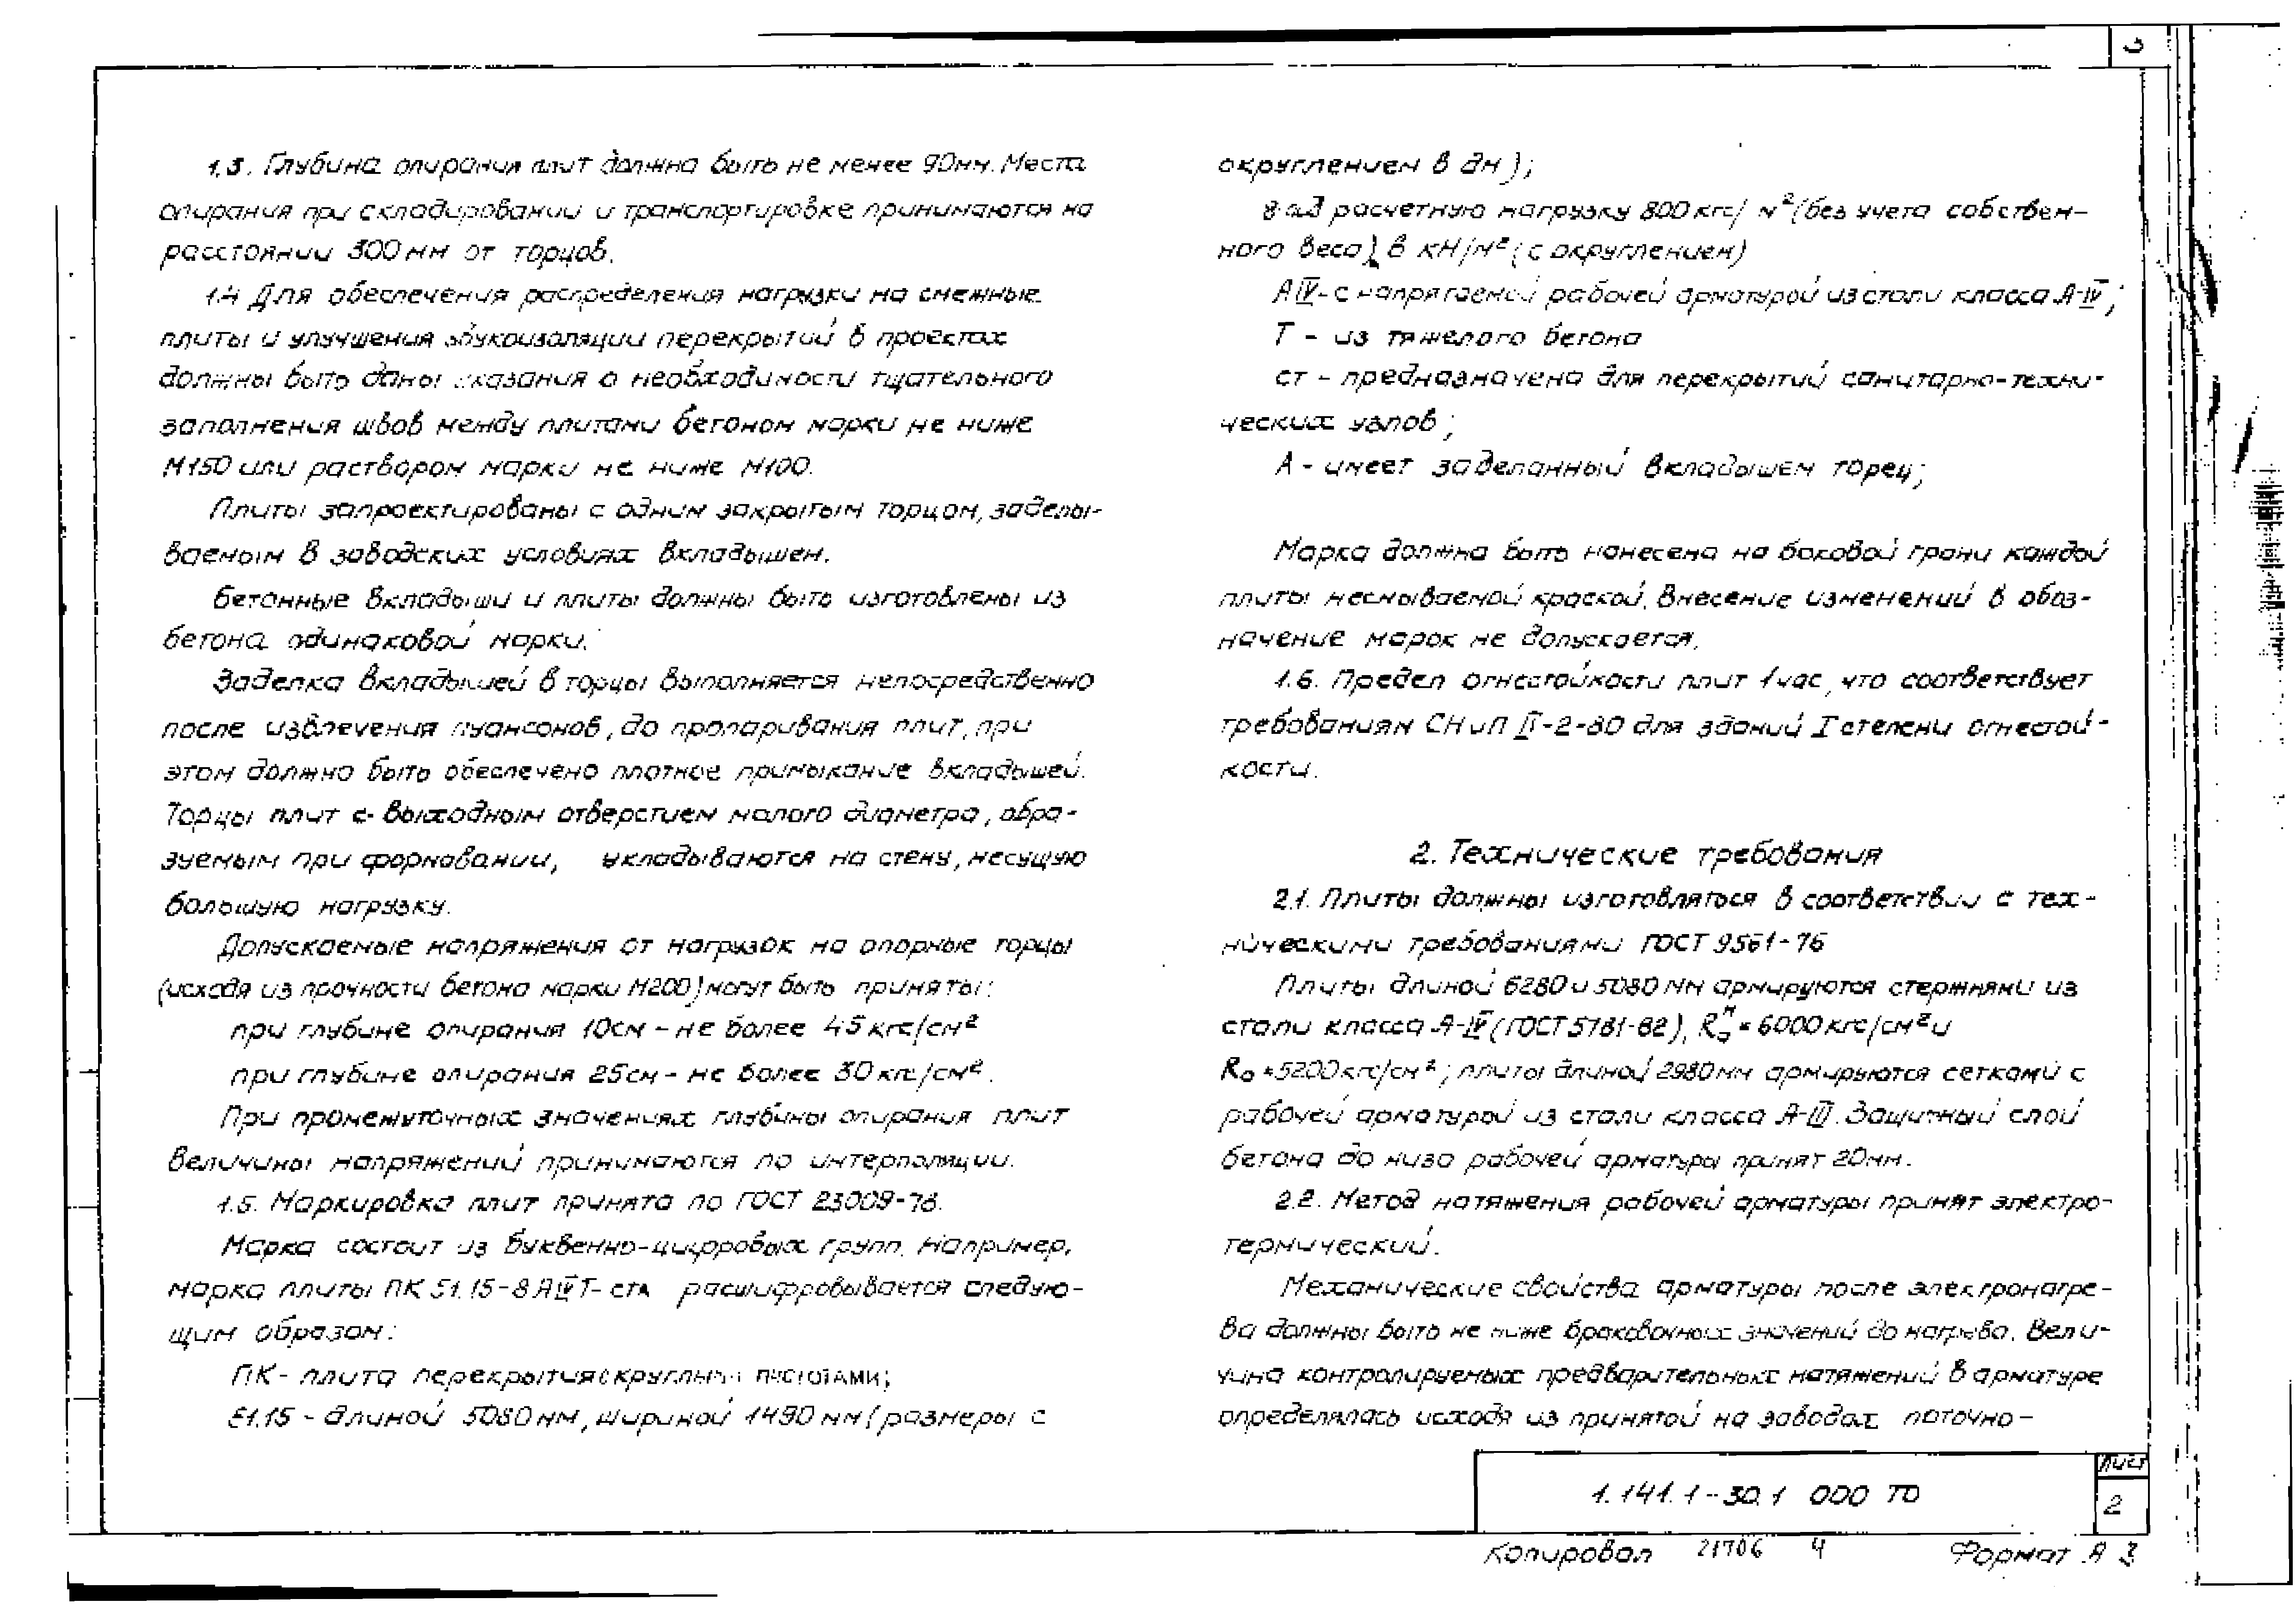 3
1.3. Глубина опирания плит должна быть не менее 90мм. Места
опирания при складировании и транспортировке принимаются на
расстоянии 300мм от торцов.
1.4 Для обеспечения распределения нагрузки на смежные
плиты и улучшения звукоизоляции перекрытий в проектах
должны быть даны указания о необходимости тщательного
заполнения швов между плитами бетоном марки не ниже
М150 или раствором марки не ниже М100.
Плиты запроектированы с одним закрытым торцом, заделы-
ваемым в заводских условиях вкладышем.
Бетонные вкладыши и плиты должны быть изготовлены из
бетона одинаковой марки.
Заделка вкладышей в торцы выполняется непосредственно
после извлечения пуансонов, до пропаривания плит, при
этом должно быть обеспечено плотное примыкание вкладышей.
Торцы плит с выходным отверстием малого диаметра, обра-
зуемым при формовании, укладываются на стену, несущую
большую нагрузку.
Допускаемые напряжения от нагрузок на опорные торцы
(исходя из прочности бетона марки М200) могут быть приняты:
при глубине опирания 10см - не более 45 кгс/см²
при глубине опирания 25см - не более 30 кгс/см².
При промежуточных значениях глубины опирания плит
величины напряжений принимаются по интерполяции.
1.5. Маркировка плит принята по ГОСТ 23009-78.
Марка состоит из буквенно-цифровых групп. Например,
марка плиты ПК 51.15-8АⅣТ-ста расшифровывается следую-
щим образом:
ПК - плита перекрытия с круглыми пустотами;
51.15 - длиной 5080мм, шириной 1490мм (размеры с
округлением в дм);
8 под расчетную нагрузку 800 кгс/м² (без учета собствен-
ного веса) в кН/м² (с округлением)
АⅣ- с напрягаемой рабочей арматурой из стали класса А-Ⅳ;
Т - из тяжелого бетона
ст - предназначена для перекрытий санитарно-техни-
ческих узлов;
А - имеет заделанный вкладышем торец;
Марка должна быть нанесена на боковой грани каждой
плиты несмываемой краской. Внесение изменений в обоз-
начение марок не допускается.
1.6. Предел огнестойкости плит 1 час, что соответствует
требованиям СНиП Ⅱ-2-80 для зданий Ⅰ степени огнестой-
кости.
2. Технические требования
2.1. Плиты должны изготовляться в соответствии с тех-
ническими требованиями ГОСТ 9561-76
Плиты длиной 6280 и 5080 мм армируются стержнями из
стали класса А-Ⅳ (ГОСТ 5781-82), Rₐᴴ = 6000 кгс/см² и
Rₐ = 5200 кгс/см²; плиты длиной 2980мм армируются сетками с
рабочей арматурой из стали класса А-Ⅲ. Защитный слой
бетона до низа рабочей арматуры принят 20мм.
2.2. Метод натяжения рабочей арматуры принят электро-
термический.
Механические свойства арматуры после электронагре-
ва должны быть не ниже браковочных значений до нагрева. Вели-
чина контролируемых предварительных натяжений в арматуре
определялась исходя из принятой на заводах поточно-
1.141.1-30.1 000 ТО
Лист
2
Копировал 21706 4 Формат А3